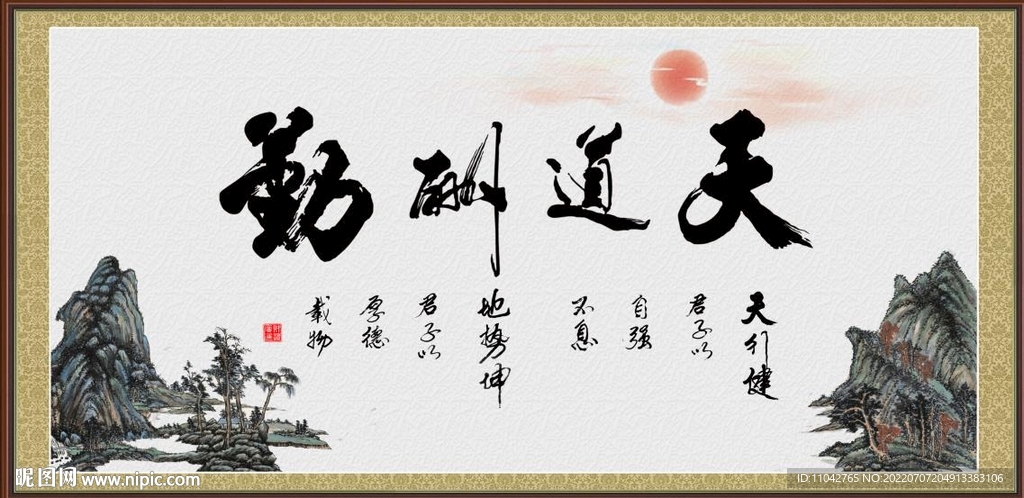 天道酬勤
天行健
君子以
自强
不息
地势坤
君子以
厚德
载物
昵图网 www.nipic.com
ID:11042765 NO:20220707204913383106